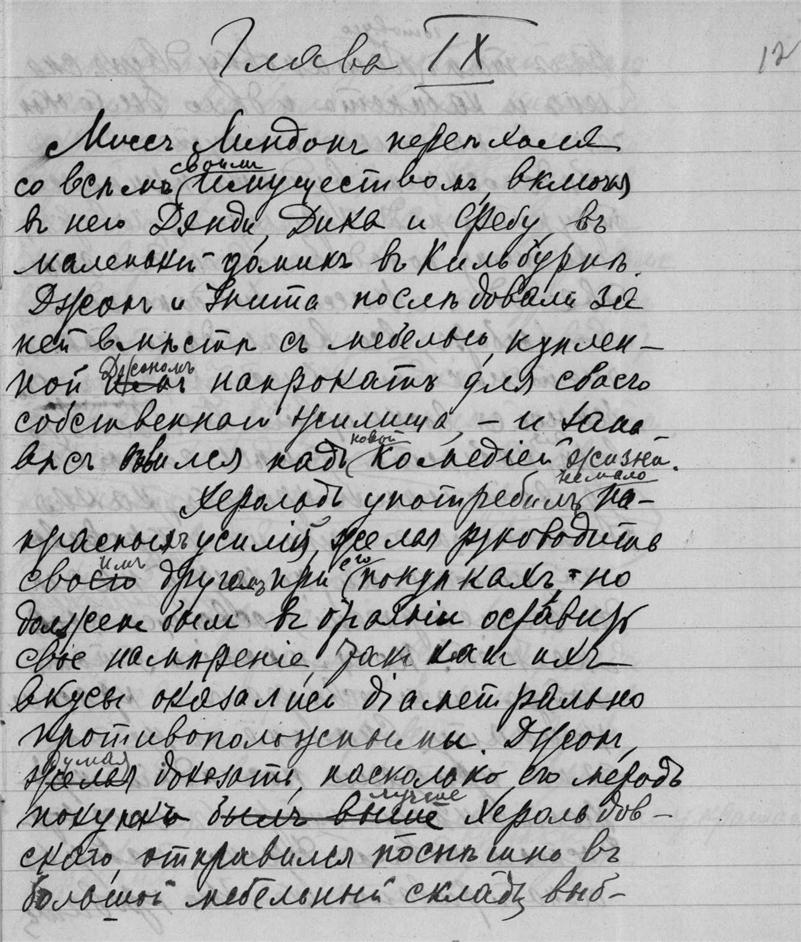 Глава IX
12
Миссъ Линдонъ переѣхала
со всѣмъ своимъ имуществомъ, включая
въ него Дэнди, Дика и Фебу, въ
маленькій домикъ въ Кильбурнѣ.
Джонъ и Унита послѣдовали за
ней вмѣстѣ съ мебелью, куплен-
ной Джономъ напрокатъ для своего
собственнаго жилища, – и зана
вѣсъ взвился надъ новой комедіей жизни.
Херольдъ употребилъ немало на-
прасныхъ усилій, желая руководить
своимъ другомъ при его покупкахъ, но
долженъ былъ въ отчаяніи оставить
свое намѣреніе, такъ какъ ихъ
вкусы оказались діаметрально
противоположными. Джонъ,
думая доказать, насколько его методъ
покупокъ былъ выше лучше Херольдов-
скаго, отправился поспѣшно въ
большой мебельный складъ, выб-